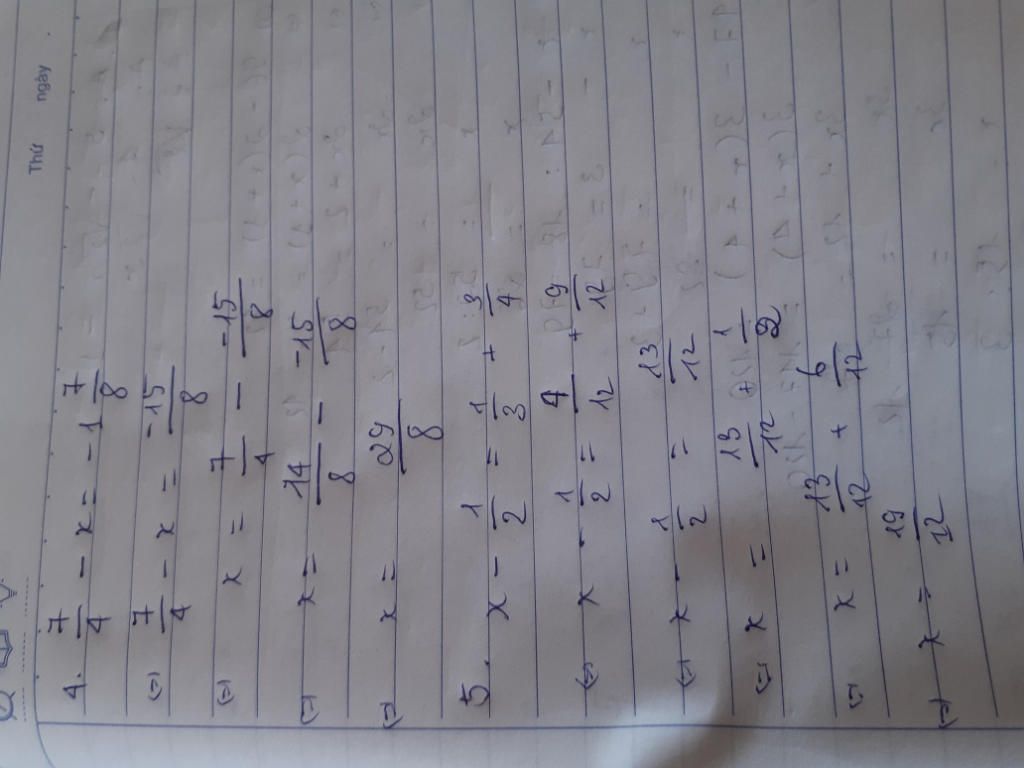 Thứ ngày
4. 7/4 - x = -1 7/8
(=) 7/4 - x = -15/8
(=) x = 7/4 - -15/8
(=) x = 14/8 - -15/8
(=) x = 29/8
5. x - 1/2 = 1/3 + 3/4
(=) x - 1/2 = 4/12 + 9/12
(=) x - 1/2 = 13/12
(=) x = 13/12 + 1/2
(=) x = 13/12 + 6/12
(=) x = 19/12